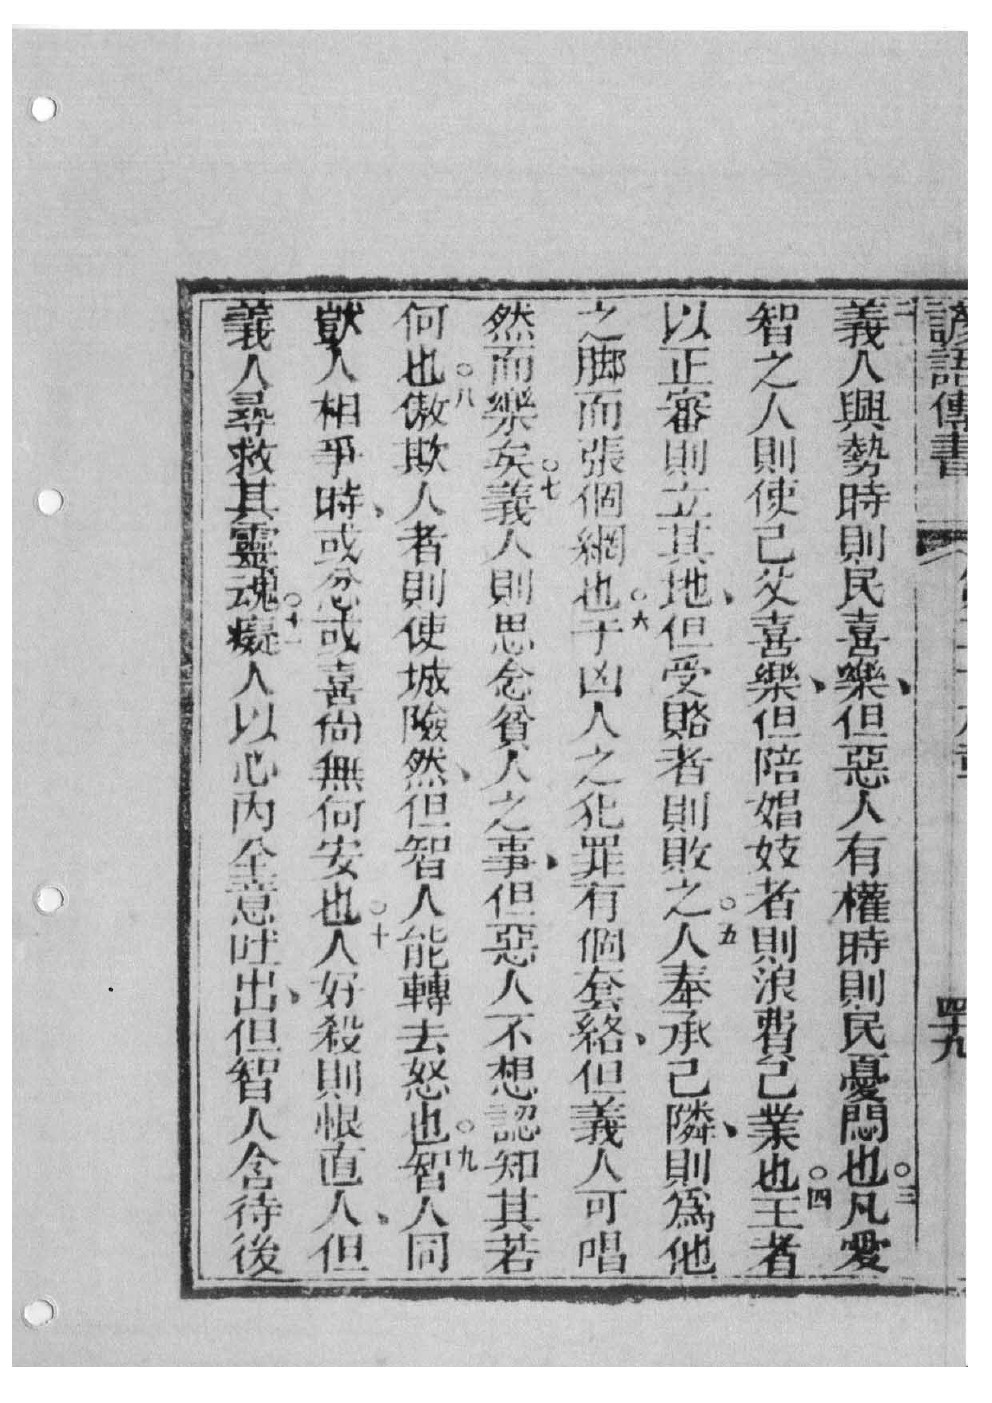 諺語傳書 第二十九章 四十九
二義人興勢時則民喜樂、但惡人有權時則民憂悶也○三凡愛
智之人則使己父喜樂、但陪娼妓者則浪費己業也○四王者
以正審則立其地、但受賂者則敗之○五人奉承己隣、則爲他
之脚而張個網也○六于凶人之犯罪有個套絡、但義人可唱
然而樂矣○七義人則思念貧人之事、但惡人不想認知其若
何也○八傲欺人者則使城險然、但智人能轉去怒也○九智人同
獃人相爭時、或忿或喜尙無何安也○十人好殺則恨直人、但
義人尋救其靈魂○十一癡人以心內全意吐出、但智人含待後